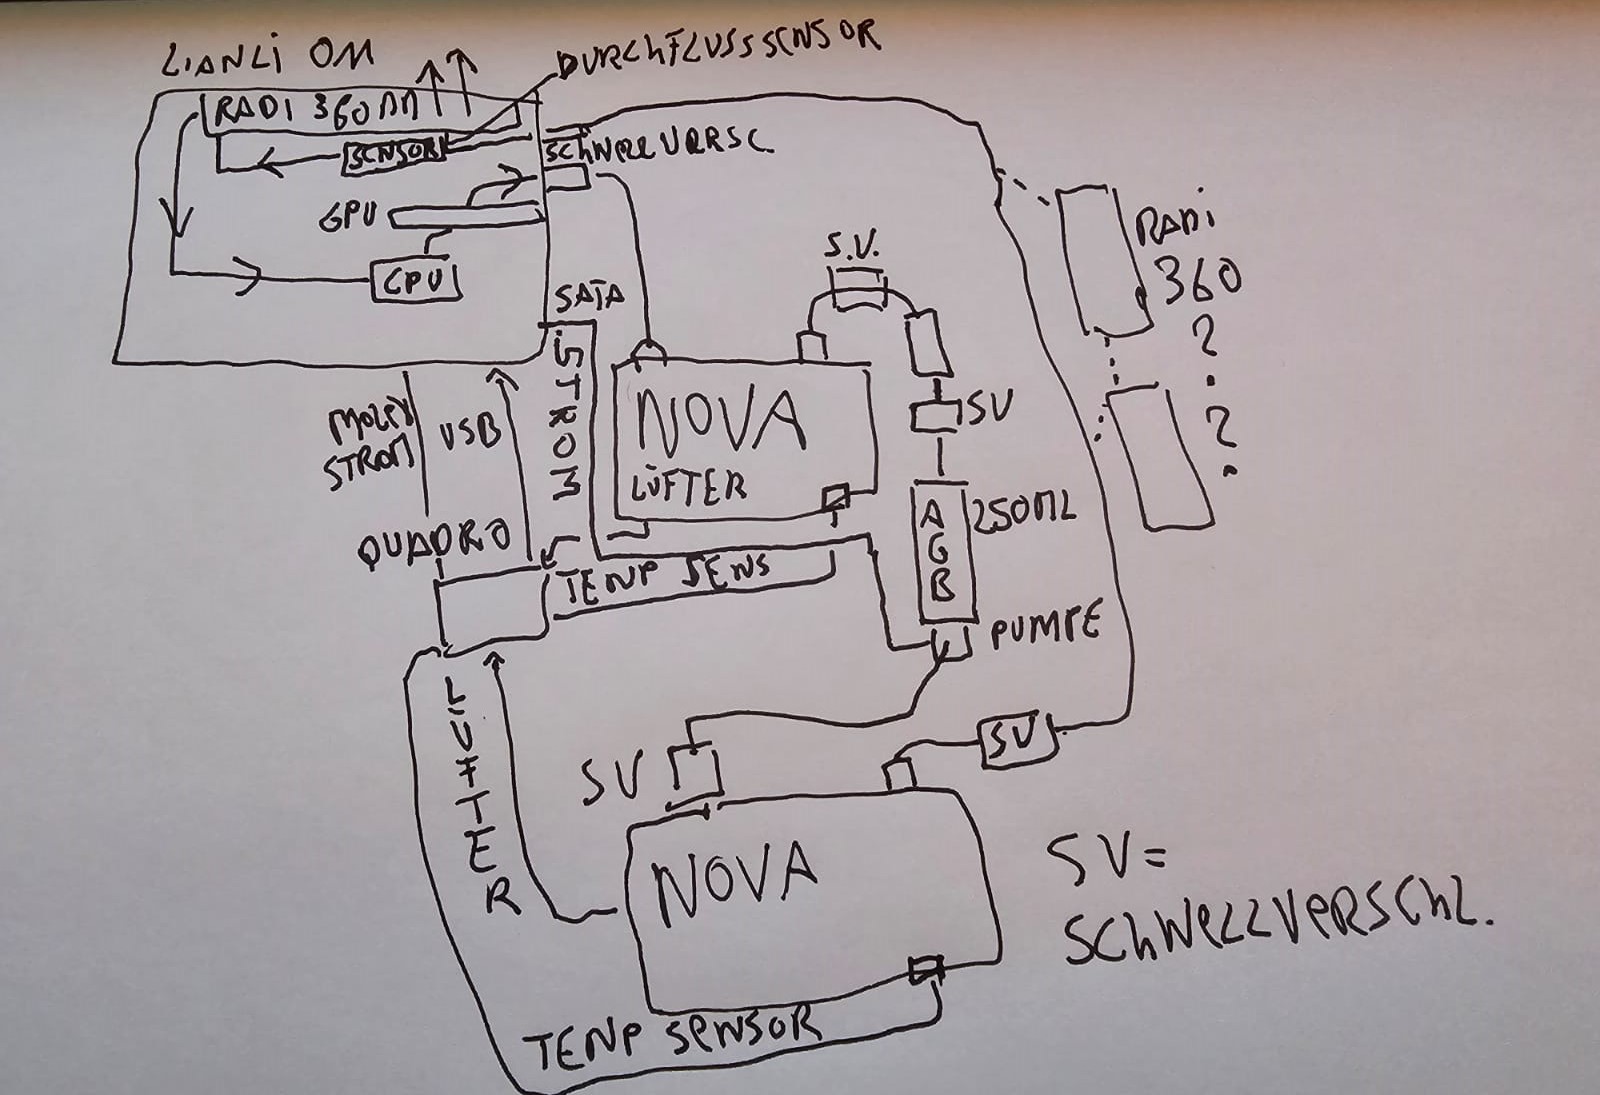 LIANLI OM
DURCHFLUSSSENSOR
RADI 360MM
SENSOR
SCHNELLVERSC
GPU
CPU
S.V.
RADi
360
?
?
SATA
STROM
MOLEX
STROM
USB
NOVA
LÜFTER
SV
AGB
250ML
QUADRO
TEMP SENS
PUMPE
LÜFTER
SV
SV
NOVA
SV=
SCHNELLVERSCHL.
TEMP SENSOR